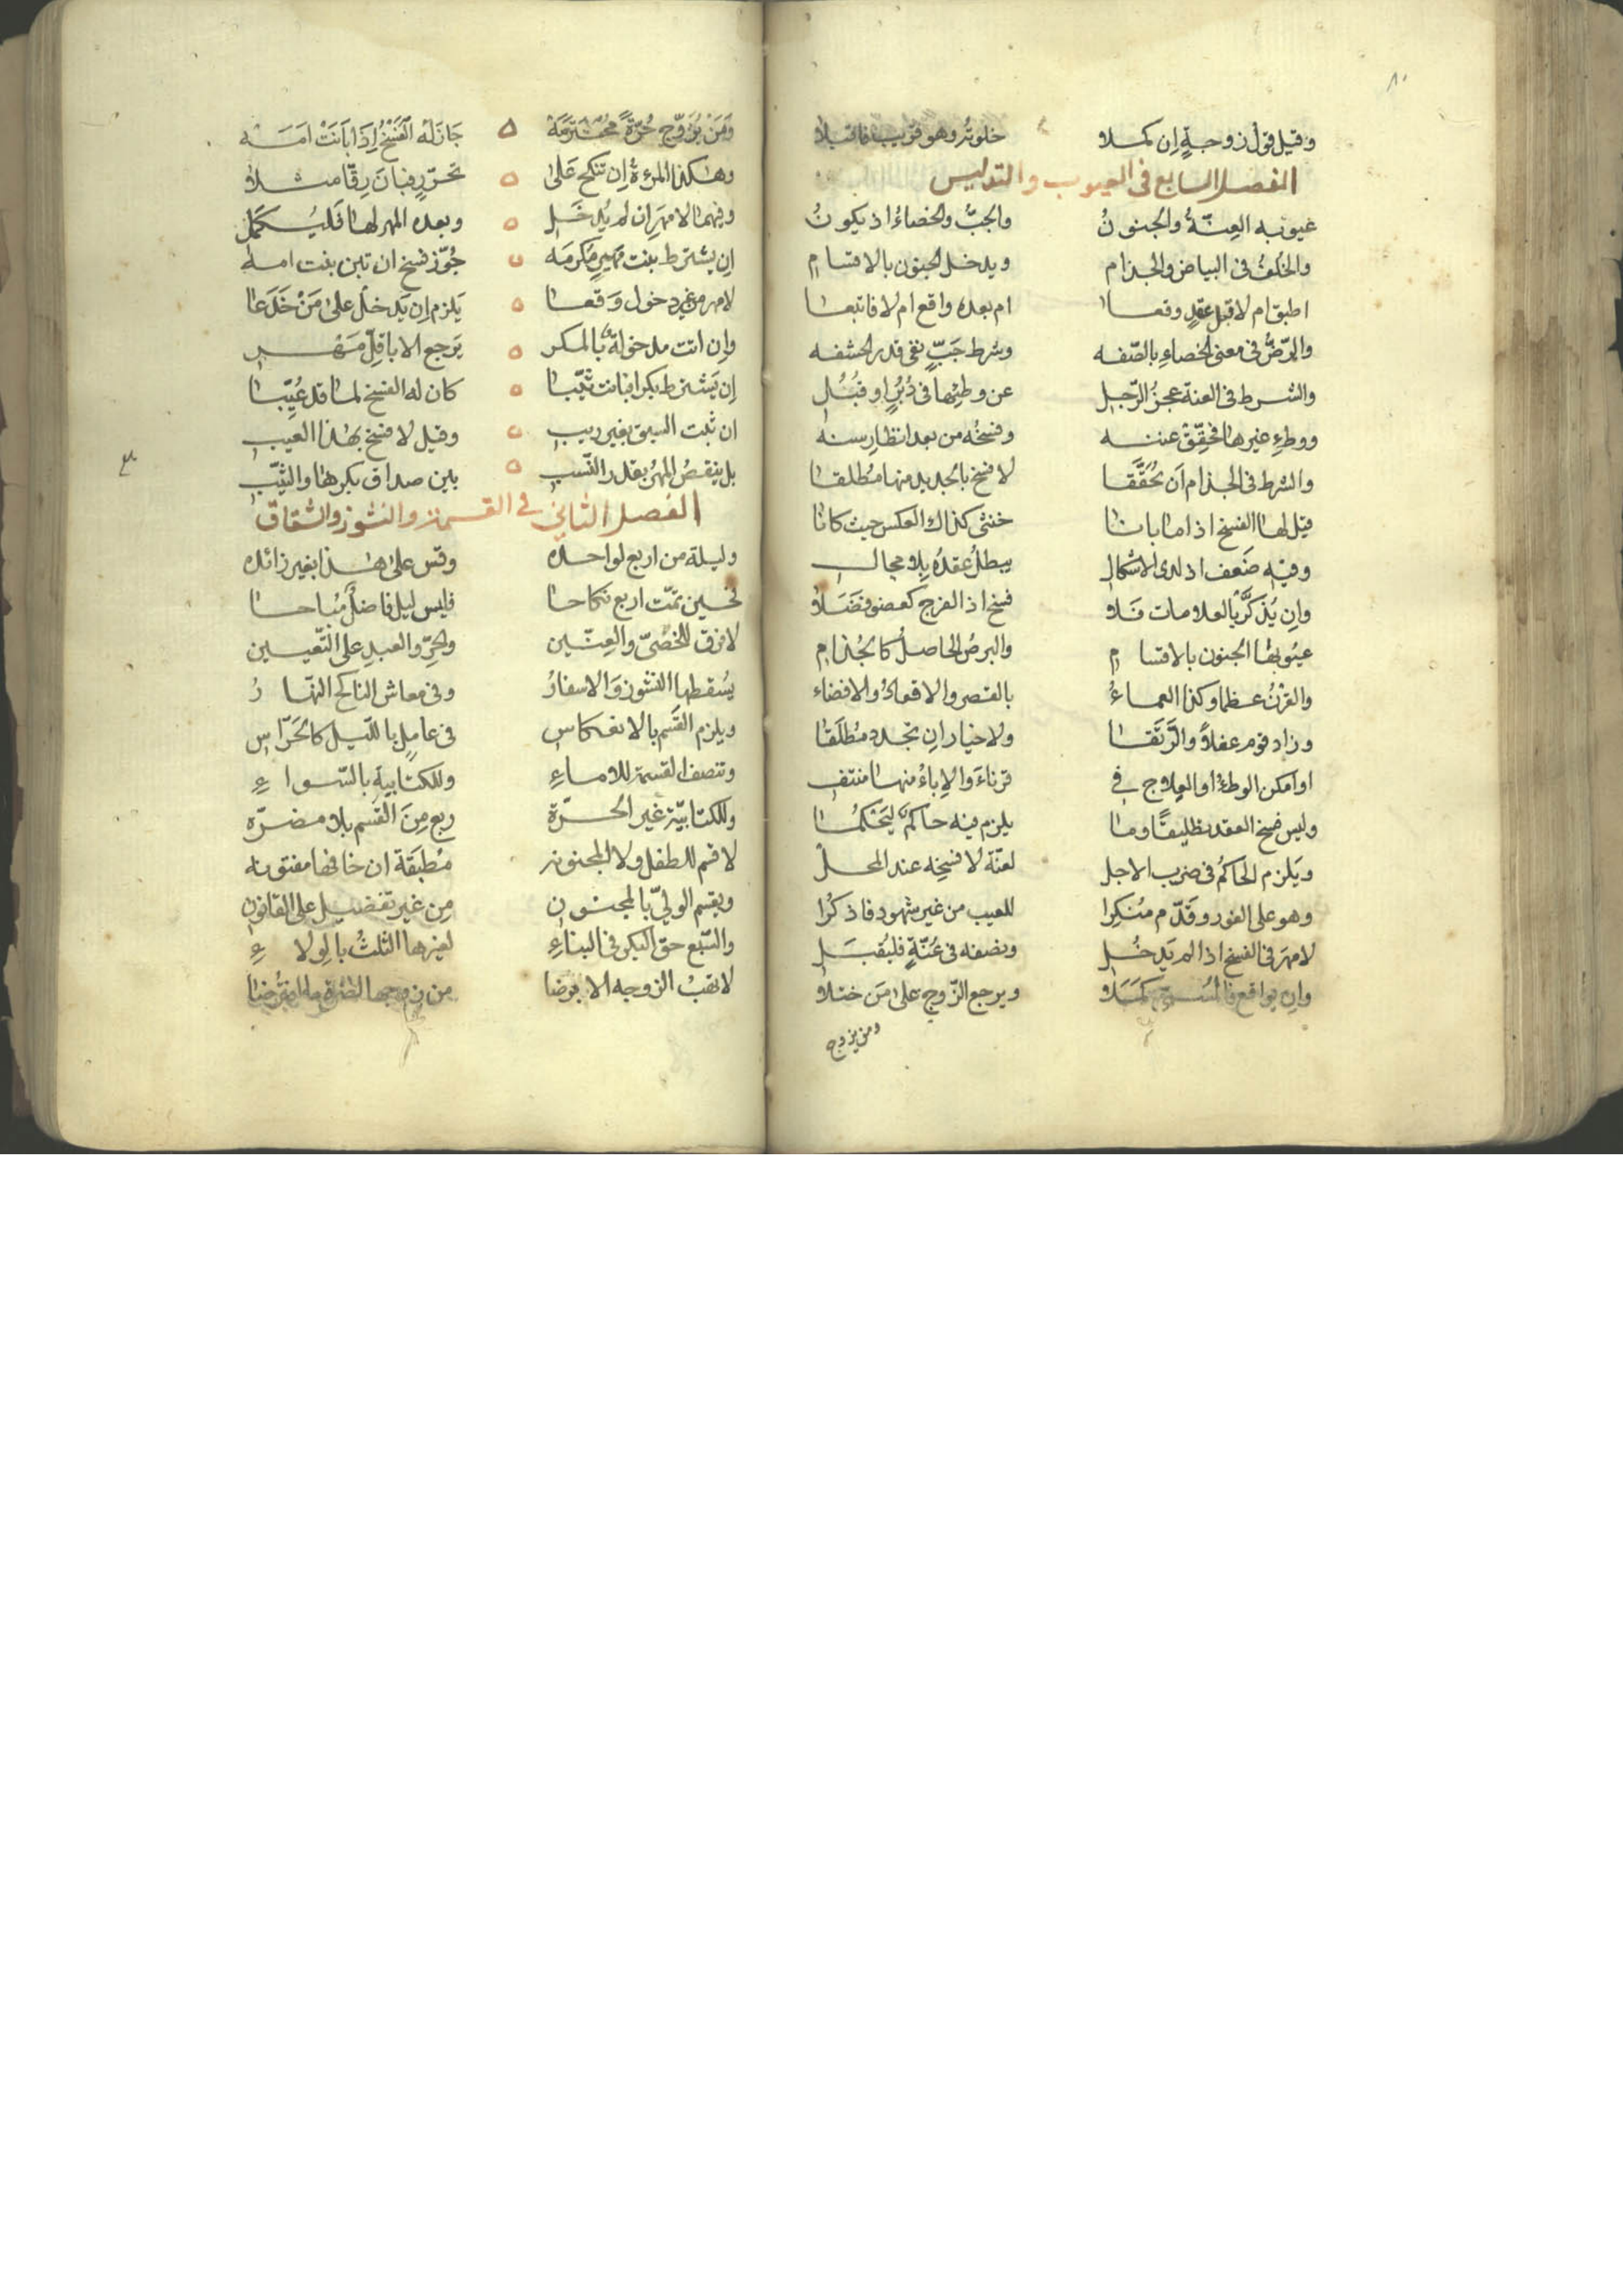 ٨٠
وقيل قول زوجةٍ ان كملا خلوته وهو قريب فاقبلا
الفصل السابع في العيوب والتدليس
عيوبه العِنّةُ والجنونُ والجبُّ والخصاءُ اذ يكونُ
والخلفُ في البياض والجذام ويدخل الجنون بالاقسام
اطبق ام لا قبل عقدٍ وقعا ام بعده واقع ام لا فاتبعا
والرّضُّ في معنى الخصاءِ بالصّفه وشرط جَبٍّ نفي قدر الحشفه
والشرط في العنة عجزُ الرّجلِ عن وطئِها في دُبُرٍ او قُبُلِ
ووطءِ غيرها فحقِّقْ عننه وفسخُه من بعد انظارِ سنه
والشرط في الجذام اَن تحَُقَّقا لا فسخ بالجديد منها مُطلقا
قيل لها الفسخ اذا ما بانا خنثى كذاك العكس حيث كانا
وفيه ضَعف اذ لدى الاشكالِ يبطلُ عقدُه بلا مجالِ
وإن يُذكَّر بالعلامات فَلا فسخ اذ الفرج كعضو فضَلا
عيُوبها الجنون بالاقسام والبرصُ الحاصلُ كالجُذامِ
والقرْنُ عظما وكذا العماءُ بالقصر والاقعادُ والافضاء
وزاد قوم عفلاً والرَّتَقا ولا خيار ان تجدد مُطلَقا
او امكن الوطءُ او العِلاج في قرناءَ والاِباءُ منها منتفِ
وليس فسخ العقد تطليقًا وما يلزم فيه حاكمٌ ليَحْكمُا
ويَلزم الحاكمُ في ضرب الاجل لعنّة لا فسخِه عند المحلّ
وهو على الفور وقَدّم مُنكِرا للعيب من غير شهود فاذكُرا
لا مهرَ في الفسخ اذا لم يَدخُلِ ونصفه في عُنّةٍ فليُقبَلِ
وان يواقع فالمُسمّى كَمَلا ويرجع الزّوج على مَن ختلا
ومن يزوج
وَمَنْ يُزَوَّج حُرّةً محُترَمَة جَازَ لهُ الفَسْخُ إذَا بَانَتْ امَمَه
وهكذا المرءةُ اِن تنكح عَلى تحرّرٍ فبانَ رِقّا مثلا
وفيهما لا مهرَ اِن لم يُدخَلِ وبعده المهر لها فَليُكمَلِ
اِن يشترط بنت مَهيرٍ مكرمَه جُوّز فسخ ان تبن بنت امه
لا مهر من غير دخول وَقعا يَلزم اِن يَدخل على مَنْ خَدَعا
واِن اتت مدخولةٌ بالمكر يَرجع الا باقلّ مَهرِ
اِن يَشترط بكرا فبانت ثيّبا كان له الفسخ لما قد عُيِّبا
ان ثبت السبق بغير ريبِ وقيل لا فسخ بهذا العيبِ
بل ينقصُ المهرُ بقدر النّسبِ بين صداق بكرها والثيّبِ
الفصل الثاني في القسمة والنشوز والشقاق
وليلة من اربع لواحده وقس على هذا بغير زائده
فحين تمّت اربع نكاحا فليس ليل فاضلٌ مُباحا
لا فرق للخصيّ والعِنّين والحرِّ والعبدِ على التّعيين
يُسقطها النشوز وَالاسفارُ وفي معاش الناكح النهارُ
ويلزم القَسم بالانعكاسِ في عاملٍ بالليل كالحَرّاسِ
وتنصف القسمة للاماءِ وللكتابية بالسّواءِ
وللكتابيّة غير الحرّة ربع مِنَ القَسم بلا مضرّه
لا قسم للطفل ولا المجنونة مُطبَقة ان خافها مفتونه
ويقسم الوليّ بالمجنونِ مِن غير تفضيل على القانونِ
والسّبع حقّ البكر في البناءِ لغيرها الثلثُ بالوِلاءِ
لا تهبُ الزوجه الا برضا من زوجها